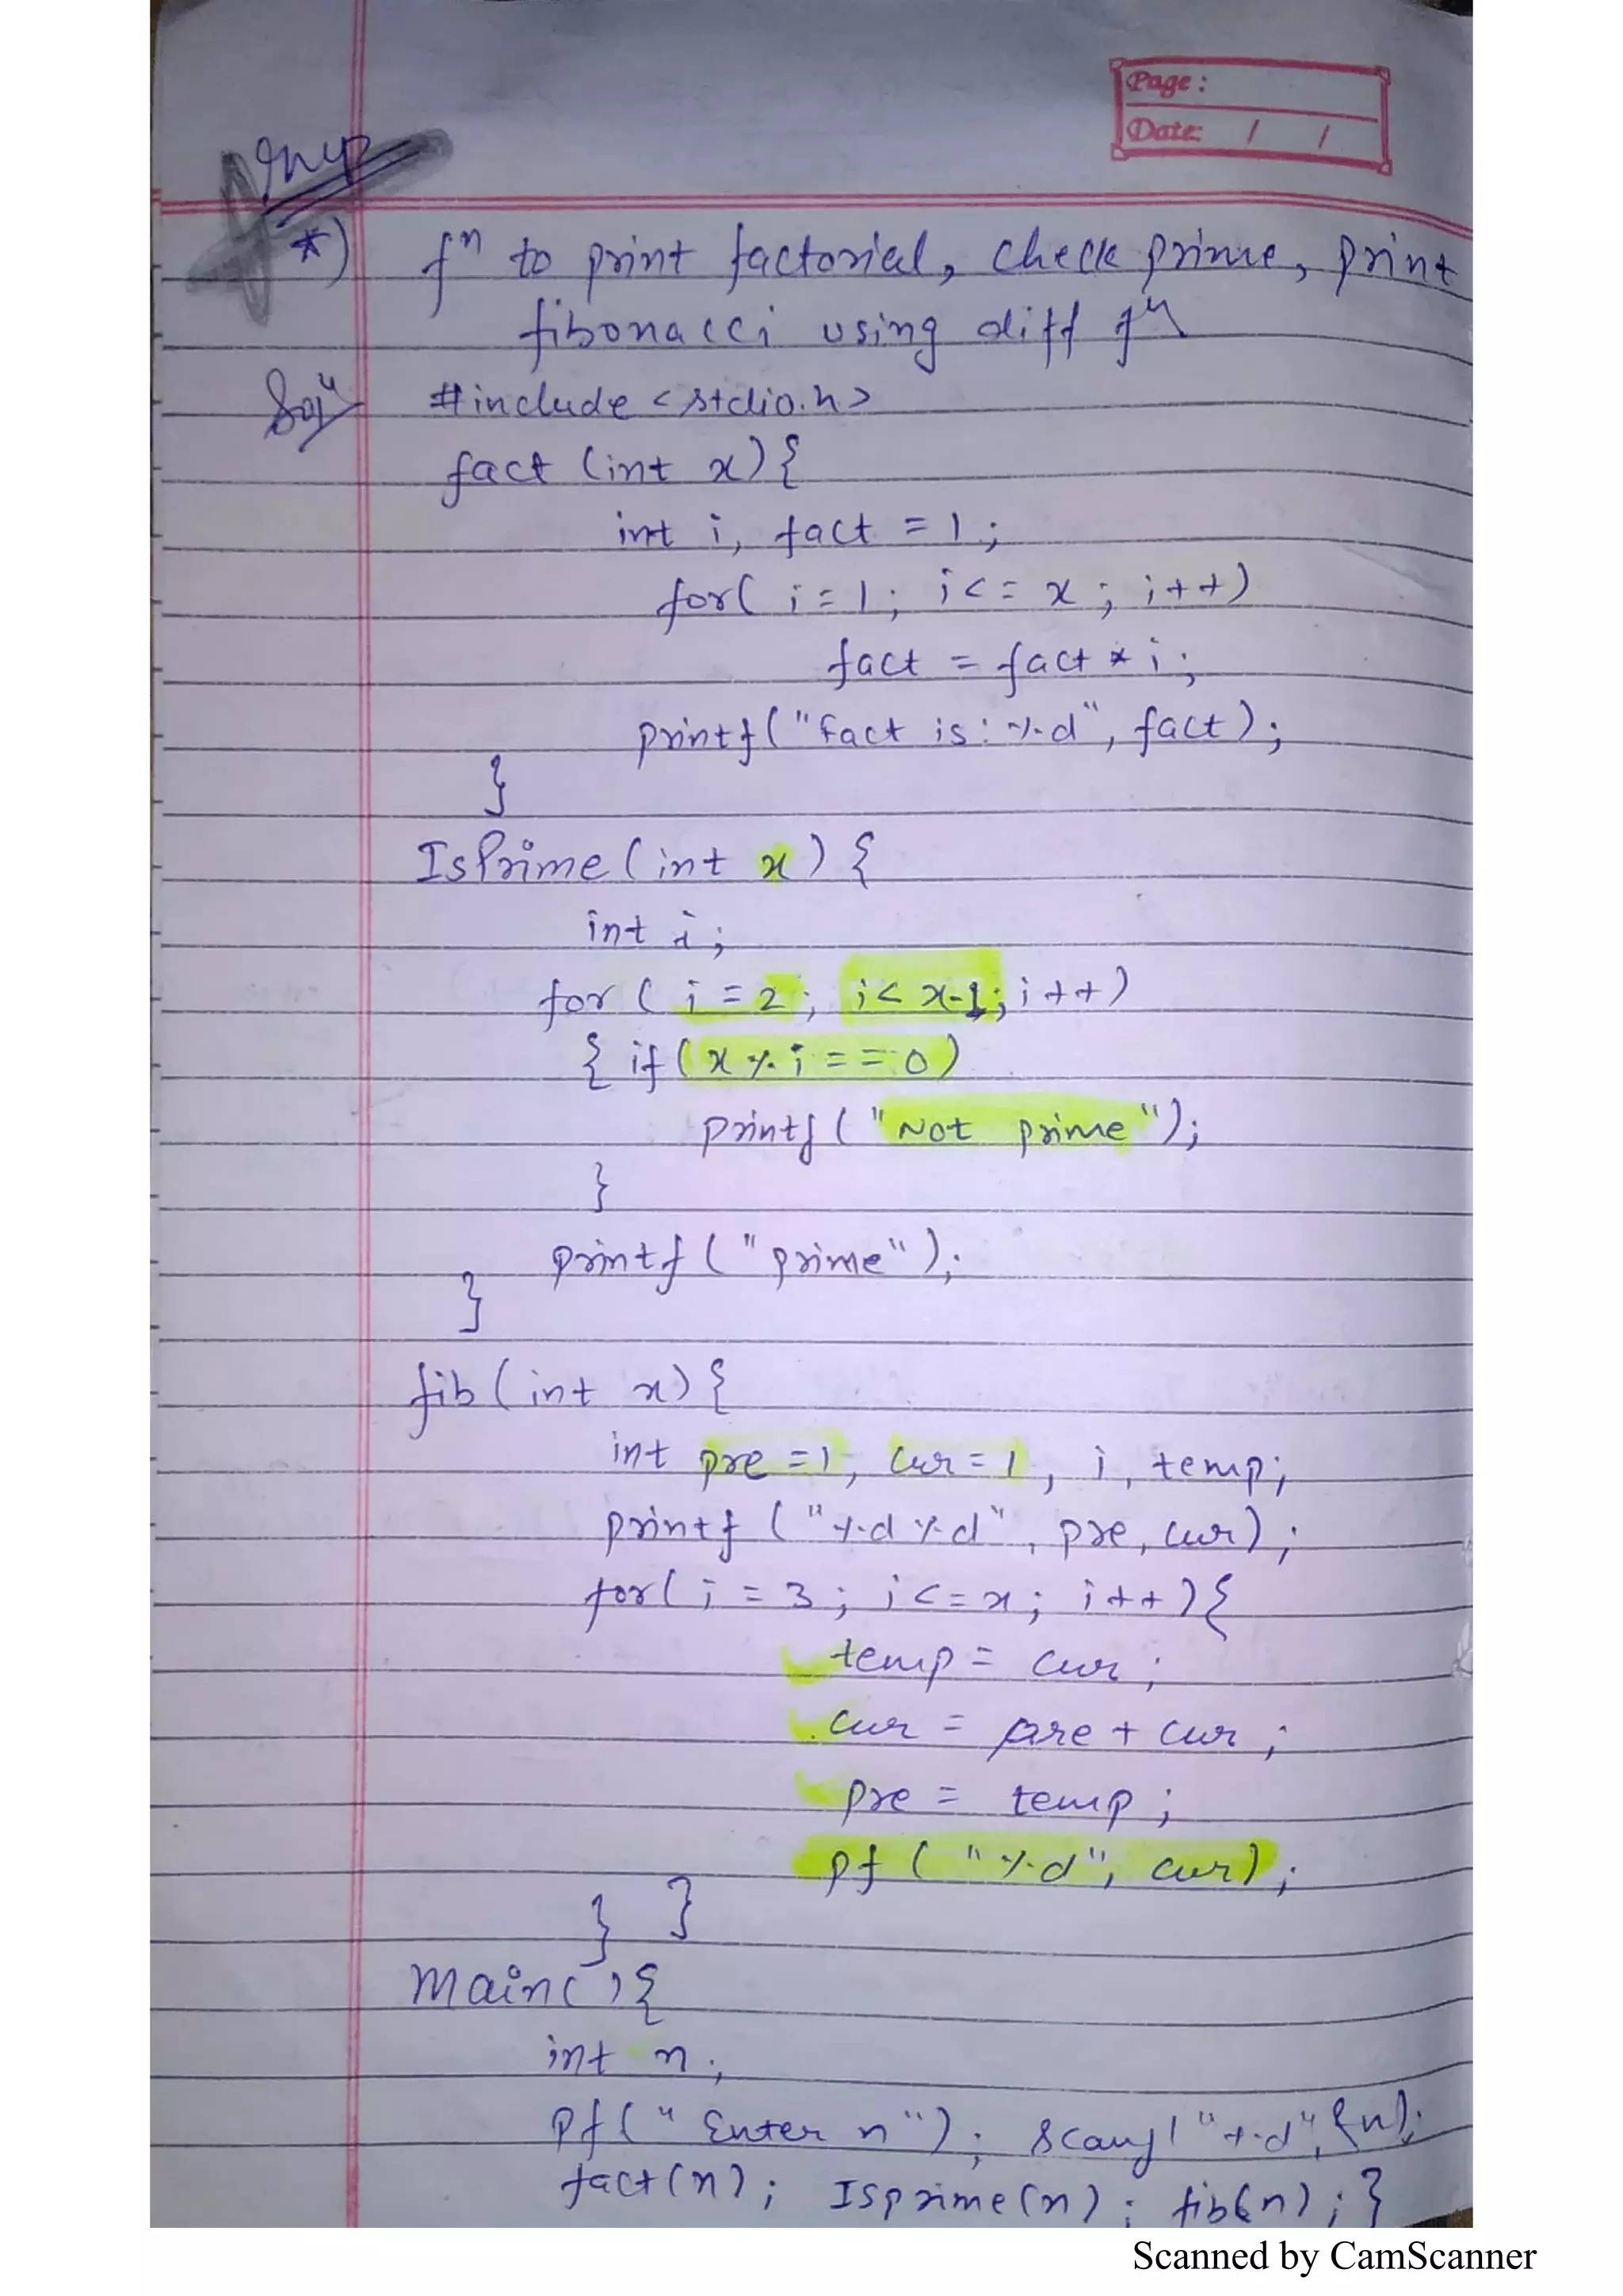 Page:
Date: / /
Imp
*) fⁿ to print factorial, check prime, print
fibonacci using diff fⁿ
Solⁿ #include <stdio.h>
fact (int x){
int i, fact = 1;
for( i = 1; i <= x; i++)
fact = fact * i;
printf("fact is: %d", fact);
}
IsPrime (int x) {
int i;
for ( i = 2; i < x-1; i++)
{ if ( x % i == 0)
printf ("Not prime");
}
printf ("prime");
}
fib (int x) {
int pre = 1, cur = 1, i, temp;
printf ("%d %d", pre, cur);
for( i = 3; i <= x; i++){
temp = cur;
cur = pre + cur;
pre = temp;
pf ("%d", cur);
} }
Main( ) {
int n;
pf (" Enter n"); scanf("%d", &n);
fact(n); Isprime(n); fib(n); }
Scanned by CamScanner